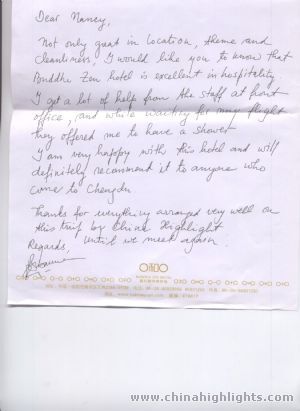 Dear Nancy,
Not only great in location, theme and
cleanliness, I would like you to know that
Buddha Zen hotel is excellent in hospitality.
I got a lot of help from the staff at front
office, and while waiting for my flight
they offered me to have a shower
I am very happy with this hotel and will
definitely recomment it to anyone who
come to Chengdu
Thanks for everything arranged very well on
this trip by China Highlight
Regards, Until we meet again.
www.chinahighlights.com